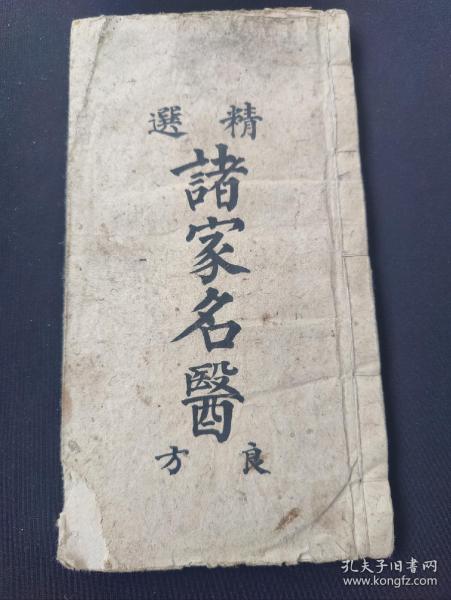 精選
諸家名醫
良方
孔夫子旧书网
www.kongfz.com